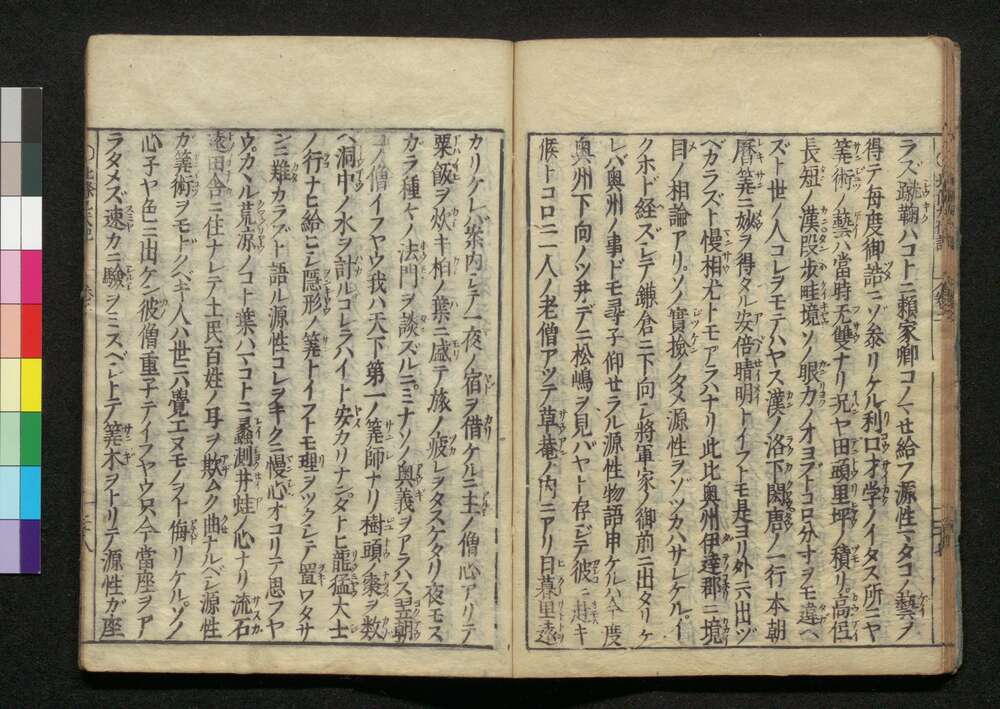 ラズ蹴鞠ハコトニ頼家卿コノマセ給フ源性マタコノ藝ヲ
得テ毎度御詰ニゾ参リケル利口才学ノイタス所ニヤ
筭術ノ藝ハ當時无雙ナリ况ヤ田頭里坪ノ積リ高低
長短ノ漢段歩畦境ソノ眼力ノオヨブトコロ分寸ヲモ違ヘ
ズト世ノ人コレヲモテハヤス漢ノ洛下閎唐ノ一行本朝
暦筭ニ妙ヲ得タル安倍晴明トイフトモ是ヨリ外ニ六出ヅ
ベカラズト慢相尤トモアラハナリ此比奥州伊達郡ニ境
目ノ相論アリソノ實撿ノタメ源性ヲゾツカハサレケルイ
クホド経ズシテ鎌倉ニ下向シ將軍家ノ御前ニ出タリケ
レバ奥州ノ事ドモ尋子仰セラル源性物語申ケルハ今度
奥州下向ノツ井デニ松嶋ヲ見バヤト存ジテ彼ニ赴キ
候トコロニ一人ノ老僧アツテ草菴ノ内ニアリ日暮里遠
カリケレバ案内シテ一夜ノ宿ヲ借ケルニ主ノ僧心アリテ
粟飯ヲ炊キ柏ノ葉ニ盛テ旅ノ疲レヲタスケタリ夜モス
ガラ種〻ノ法門ヲ談ズルニミナソノ奥義ヲアラハス翌朝
コノ僧イフヤウ我ハ天下第一ノ筭師ナリ樹頭ノ棗ヲ数
ヘ洞中ノ水ヲ計ルコレラハイト安カリナンタトヒ龍猛大士
ノ行ナヒ給ヒシ隠形ノ筭トイフトモ理ヲツクシテ置ワタサ
ンニ難カラズト語ル源性コレヲキクニ慢心オコリテ思フヤ
ウカヽル荒凉ノコト葉ハマコトニ蠡測井蛙ノ心ナリ流石
遠田舎ニ住ナレテ土民百姓ノ耳ヲ欺ムク曲ナルベシ源性
ガ筭術ヲモドクベキ人ハ世ニ六覺エヌモノヲト侮リケルソノ
心子ヤ色ニ出ケン彼僧重子テイフヤウ只今當座ヲア
ラタメズ速カニ驗ヲミスベシトテ筭木ヲトリテ源性ガ座